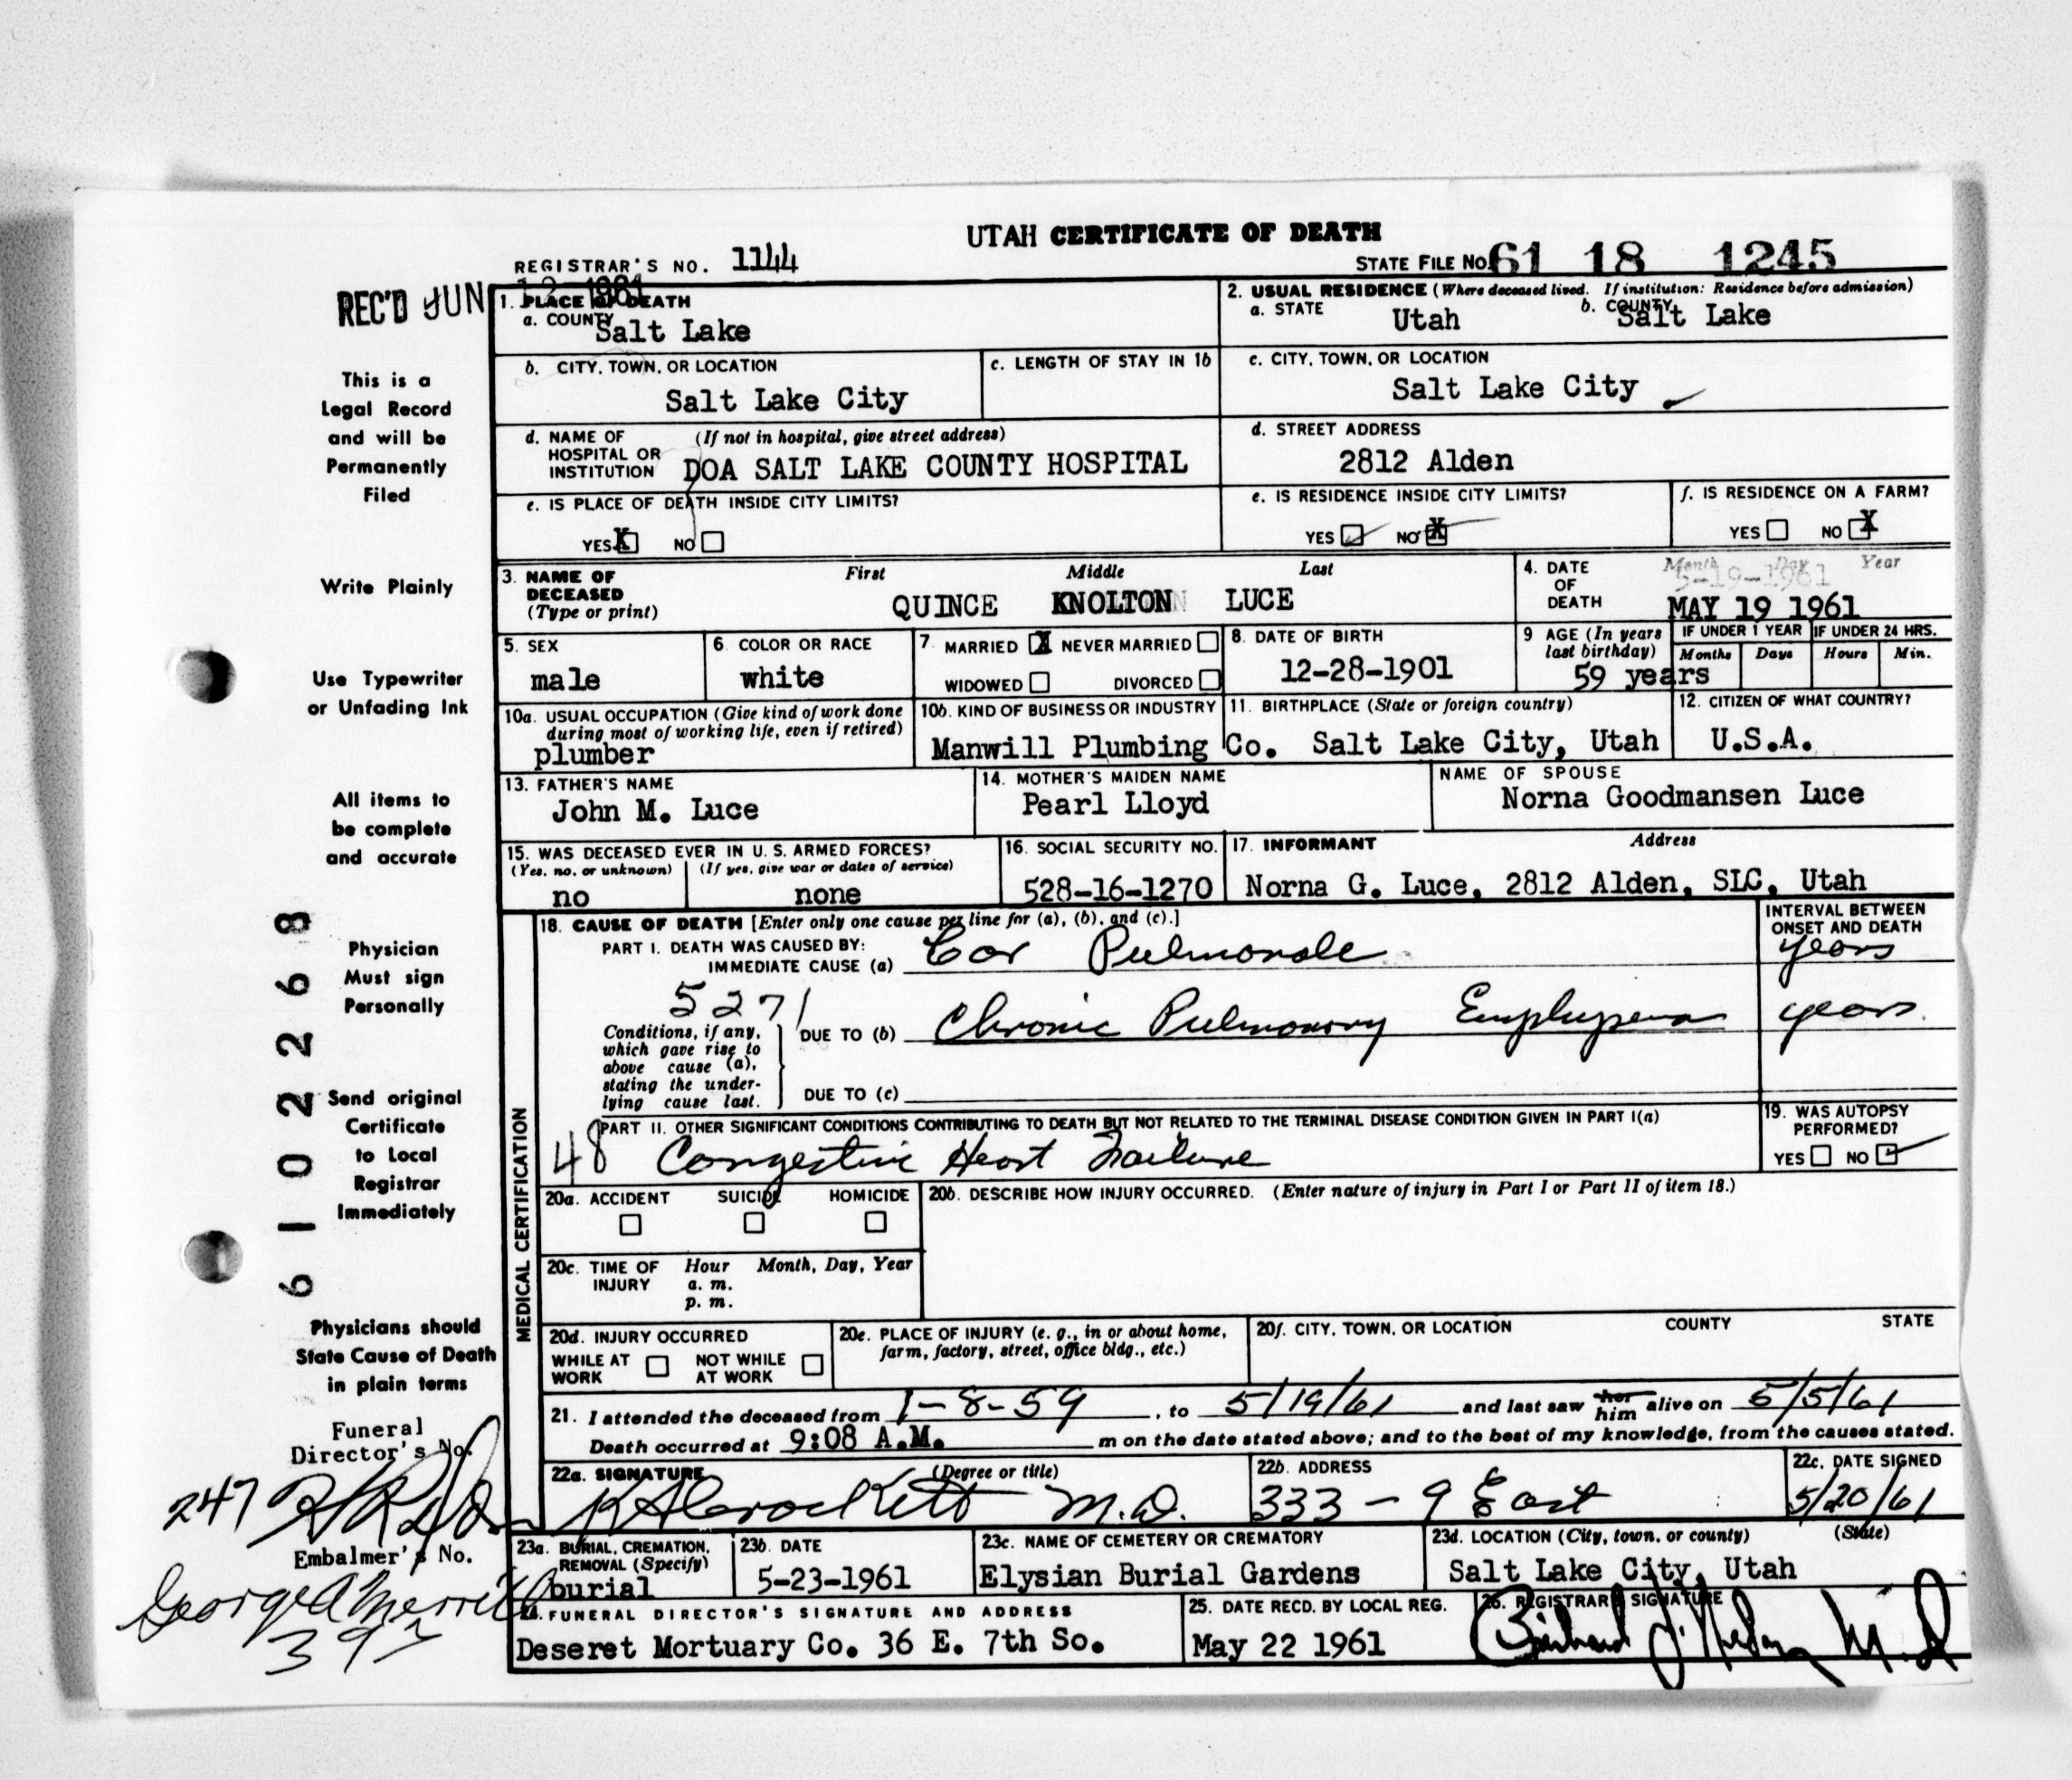 UTAH CERTIFICATE OF DEATH
REGISTRAR'S NO. 1144
STATE FILE NO. 61 18 1245
REC'D JUN 12 1961
1. PLACE OF DEATH
a. COUNTY Salt Lake
2. USUAL RESIDENCE (Where deceased lived. If institution: Residence before admission)
a. STATE Utah b. COUNTY Salt Lake
b. CITY, TOWN, OR LOCATION Salt Lake City
c. LENGTH OF STAY IN 1b
c. CITY, TOWN, OR LOCATION Salt Lake City
d. NAME OF HOSPITAL OR INSTITUTION (If not in hospital, give street address)
DOA SALT LAKE COUNTY HOSPITAL
d. STREET ADDRESS 2812 Alden
e. IS PLACE OF DEATH INSIDE CITY LIMITS?
YES X NO
e. IS RESIDENCE INSIDE CITY LIMITS?
YES NO X
f. IS RESIDENCE ON A FARM?
YES NO X
3. NAME OF DECEASED (Type or print)
First Middle Last
QUINCE KNOLTON LUCE
4. DATE OF DEATH Month Day Year
5-19-1961
MAY 19 1961
5. SEX male
6. COLOR OR RACE white
7. MARRIED X NEVER MARRIED
WIDOWED DIVORCED
8. DATE OF BIRTH 12-28-1901
9 AGE (In years last birthday) 59 years
IF UNDER 1 YEAR Months Days
IF UNDER 24 HRS. Hours Min.
10a. USUAL OCCUPATION (Give kind of work done during most of working life, even if retired)
plumber
10b. KIND OF BUSINESS OR INDUSTRY
Manwill Plumbing Co.
11. BIRTHPLACE (State or foreign country)
Salt Lake City, Utah
12. CITIZEN OF WHAT COUNTRY?
U.S.A.
13. FATHER'S NAME
John M. Luce
14. MOTHER'S MAIDEN NAME
Pearl Lloyd
NAME OF SPOUSE
Norna Goodmansen Luce
15. WAS DECEASED EVER IN U. S. ARMED FORCES?
(Yes, no, or unknown) (If yes, give war or dates of service)
no none
16. SOCIAL SECURITY NO.
528-16-1270
17. INFORMANT Address
Norna G. Luce, 2812 Alden, SLC, Utah
MEDICAL CERTIFICATION
18. CAUSE OF DEATH [Enter only one cause per line for (a), (b), and (c).]
INTERVAL BETWEEN ONSET AND DEATH
PART I. DEATH WAS CAUSED BY:
IMMEDIATE CAUSE (a) Cor Pulmonale years
5271
Conditions, if any, which gave rise to above cause (a), stating the underlying cause last.
DUE TO (b) Chronic Pulmonary Emphysema years
DUE TO (c)
PART II. OTHER SIGNIFICANT CONDITIONS CONTRIBUTING TO DEATH BUT NOT RELATED TO THE TERMINAL DISEASE CONDITION GIVEN IN PART I(a)
48 Congestive Heart Failure
19. WAS AUTOPSY PERFORMED?
YES NO
20a. ACCIDENT SUICIDE HOMICIDE
20b. DESCRIBE HOW INJURY OCCURRED. (Enter nature of injury in Part I or Part II of item 18.)
20c. TIME OF INJURY Hour Month, Day, Year
a. m.
p. m.
20d. INJURY OCCURRED
WHILE AT WORK NOT WHILE AT WORK
20e. PLACE OF INJURY (e. g., in or about home, farm, factory, street, office bldg., etc.)
20f. CITY, TOWN, OR LOCATION COUNTY STATE
21. I attended the deceased from 1-8-59, to 5/19/61 and last saw her him alive on 5/5/61
Death occurred at 9:08 A.M. m on the date stated above; and to the best of my knowledge, from the causes stated.
22a. SIGNATURE (Degree or title)
Crockett M.D.
22b. ADDRESS
333 - 9 East
22c. DATE SIGNED
5/20/61
23a. BURIAL, CREMATION, REMOVAL (Specify)
burial
23b. DATE
5-23-1961
23c. NAME OF CEMETERY OR CREMATORY
Elysian Burial Gardens
23d. LOCATION (City, town, or county) (State)
Salt Lake City, Utah
24. FUNERAL DIRECTOR'S SIGNATURE AND ADDRESS
Deseret Mortuary Co. 36 E. 7th So.
25. DATE RECD. BY LOCAL REG.
May 22 1961
26. REGISTRAR'S SIGNATURE
M.D
This is a
Legal Record
and will be
Permanently
Filed
Write Plainly
Use Typewriter
or Unfading Ink
All items to
be complete
and accurate
Physician
Must sign
Personally
Send original
Certificate
to Local
Registrar
Immediately
Physicians should
State Cause of Death
in plain terms
61 02268
Funeral
Director's No.
247
Embalmer's No.
George A Merrill
393